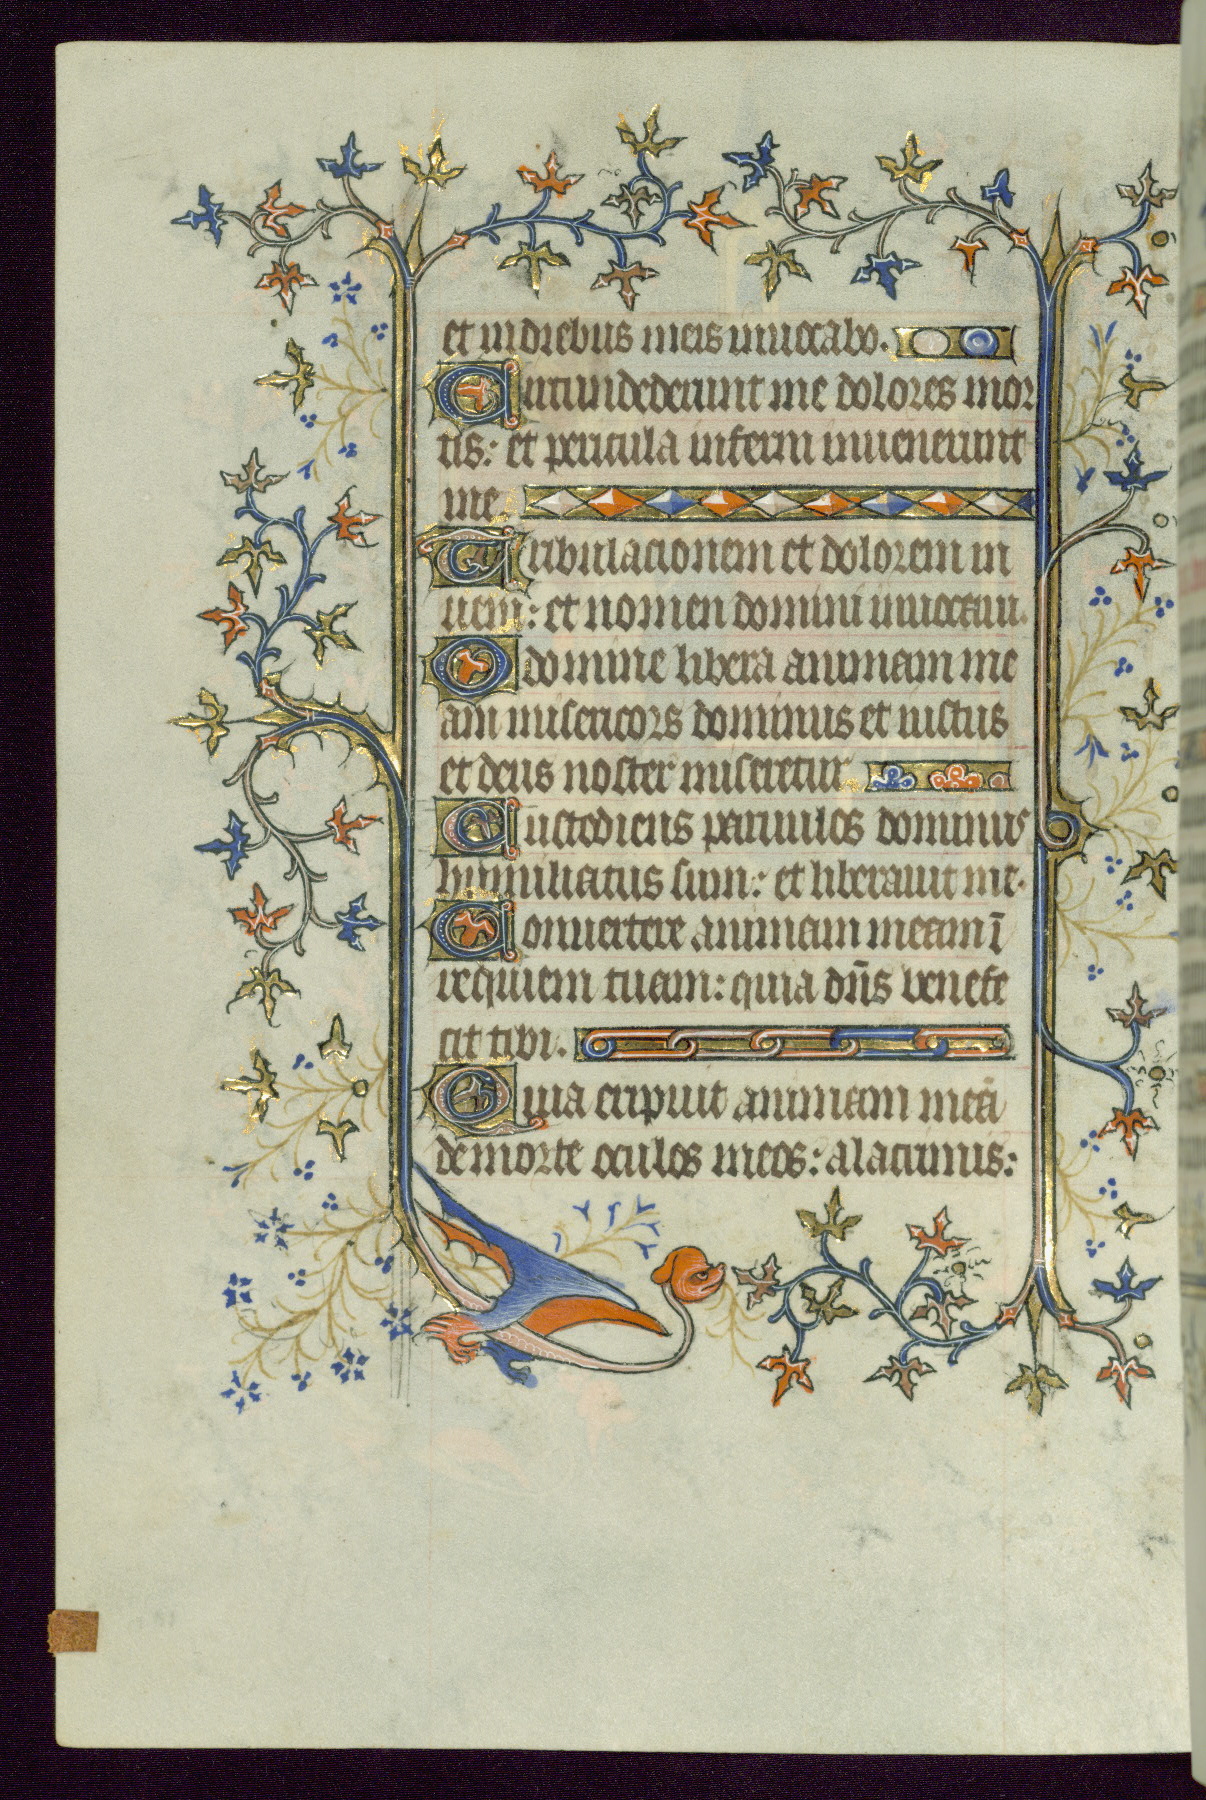 et in diebus meis inuocabo.
Circumdederunt me dolores mor
tis: et pericula inferni inuenerunt
me.
Tribulacionem et dolorem in
ueni: et nomen domini inuocaui.
O domine libera animam me
am misericors dominus et iustus
et deus noster miseretur
Custodiens paruulos dominus
humiliatus sum: et liberauit me.
Conuertere animam meam ī
requiem tuam: quia dn̄s benefe
cit tibi.
Quia eripuit animam meā
de morte oculos meos: a lacrimis: